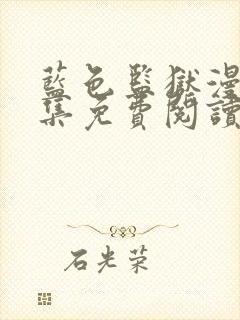 藍色監獄漫
集免費閱讀
石光荣